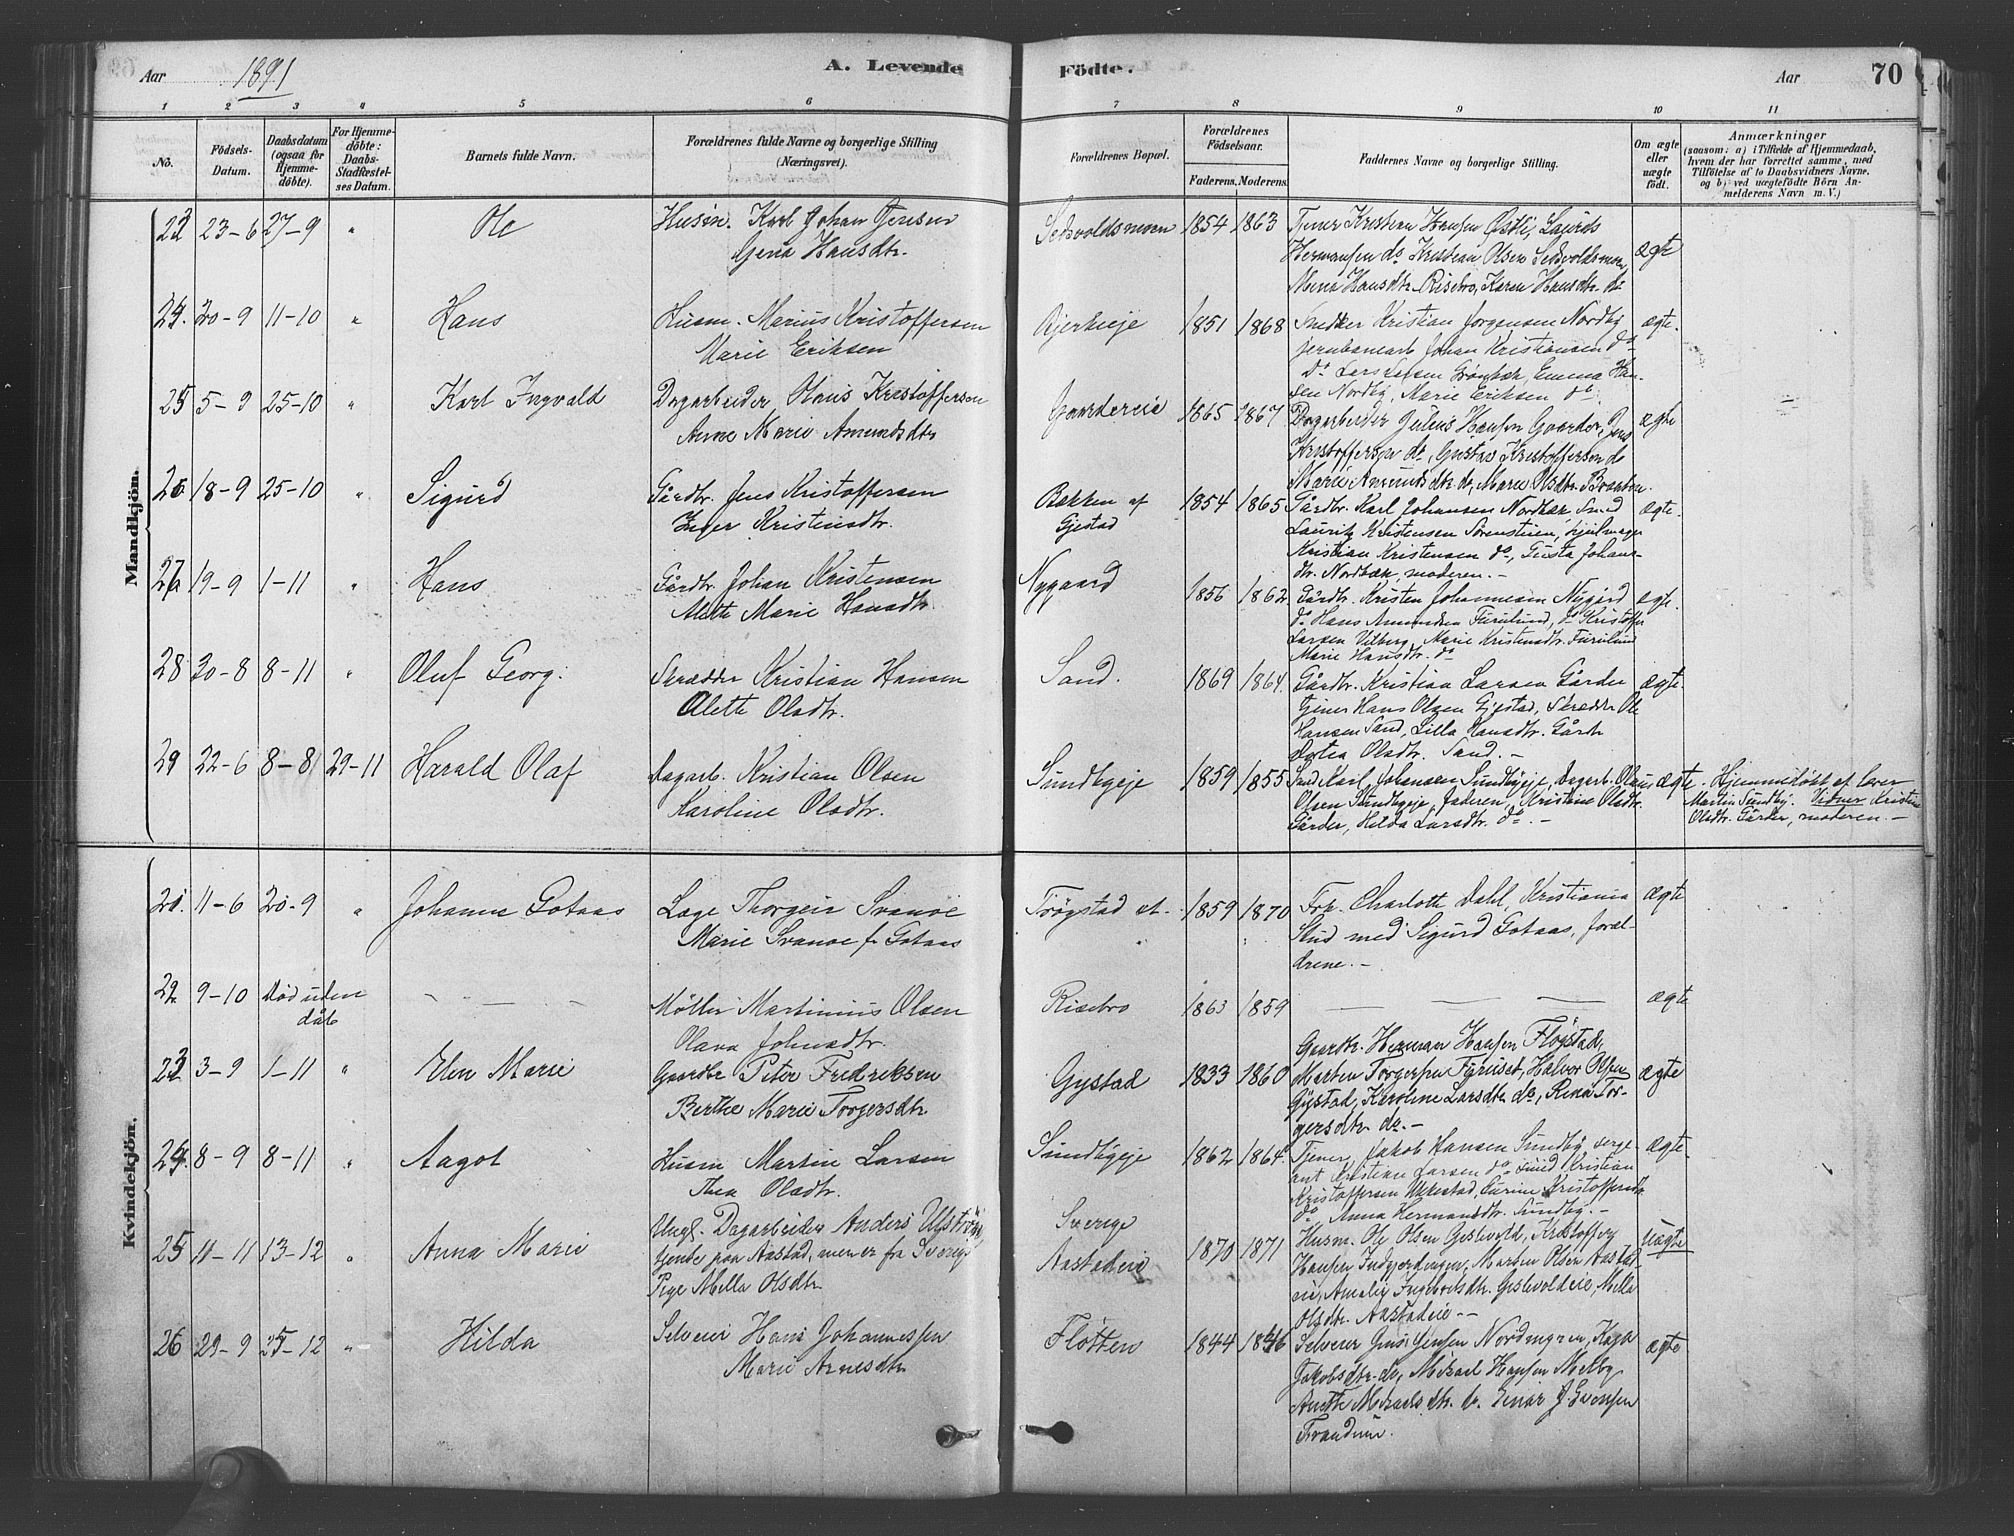 Aar 1891 A. Levende Födte. Aar 70
1 2 3 4 5 6 7 8 9 10 11
No.
Födsels-Datum.
Daabsdatum (ogsaa for Hjemmedöbte).
For Hjemmedöbte: Daabs-Stadfæstelses Datum.
Barnets fulde Navn.
Forældrenes fulde Navne og borgerlige Stilling (Næringsvei).
Forældrenes Bopæl.
Forældrenes Födselsaar.
Faderens. Moderens.
Faddernes Navne og borgerlige Stilling.
Om ægte eller uægte födt.
Anmærkninger
(saasom: a) i Tilfælde af Hjemmedaab,
hvem der har forrettet samme, med
Tilföielse af to Daabsvidners Navne,
og b) ved uægtefödte Börn Anmelderens Navn m. V.)
Mandkjön.
23 23-6 27-9 " Ole Husm. Karl Johan Jensen 1854 1863 Tjener Kristian Hansen Østli, Laurits
Gina Hansdtr. Hermansen do Kristian Olsen ægte
Mina Hansdtr. Risebro, Karen Hansdtr. do
24. 20-9 11-10 " Hans Husm. Marius Kristoffersen 1851 1868 Snedker Kristian Jorgensen Nordby ægte.
Marie Eriksen jernbanearb. Johan Kristiansen do
do Emma Hansen Nordby, Marie Eriksen do
25 5-9 25-10 " Karl Ingvald Dagarbeider Olaus Kristoffersen Gaardereie 1865 1867 Dagarbeider Julius Hansen Gaarder, Jens ægte
Anne Marie Amundsdtr. Kristoffersen do, Gustav Kristoffersen do
Marie Amundsdtr. do, Marie Olsdtr.
26 18-9 25-10 " Sigurd Gårdbr. Jens Kristoffersen Bakken af Gjestad 1854 1865 Gårdbr. Karl Johansen Nordbæk Smed ægte.
Inger Kristensdtr. Lauritz Kristensen Sorenstuen, hjulmager
Kristian Kristensen do, Gusta Johansdtr. Nordbæk, moderen. -
27 19-9 1-11 " Hans Gårdbr. Johan Kristensen Nygaard 1856 1862 Gårdbr. Kristen Johannesen Nygård ægte.
Alette Marie Hansdtr. do Hans Amundsen Furulund, do Kristoffer
Larsen Vilberg, Marie Kristensdtr. Furulund
Marie Hansdtr. do
28 30-8 8-11 " Oluf Georg. Skrædder Kristian Hansen Sand. 1869 1864. Gårdbr. Kristian Larsen Gårder ægte.
Alette Olsdtr. tjener Hans Olsen Gjestad, Skrædder Ole
Hansen Sand, Lilla Hansdtr.
Olsdtr. Sand. -
29 22-6 8-8 29-11 Harald Olaf Dagarb. Kristian Olsen Sundbyeje 1859 1855 Smed Karl Johansen Sundbyeje, Dagarb. Olaus ægte Hjemmedøbt af
Karoline Olsdtr. Olsen Sundbyeje, faderen, Kristine Olsdtr. Martin Sundby. Vidner Kristine
Gårder, Hilda Larsdtr. do. - Olsdtr. Gårder, moderen. -
Kvindekjön.
11-6 20-9 " Johanne Gotaas Læge Thorgeir Svanøe Trøgstad 1859 1870 Frk. Charlotte Dahl, Kristiania ægte
Marie Svanøe f. Gotaas Stud med Sigurd Gotaas, forældrene. -
22 9-10 Død uden dåb - - - Møller Martinius Olsen Risebro 1863 1859 - - - ægte
Olava Johnsdtr.
23 3-9 1-11 " Elen Marie Gaardbr Peter Fredriksen Gjestad 1833 1860 Gaardbr. Herman Hansen Fløgstad,
Berthe Marie Torgersdtr. Morten Torgersen Fyruset, Halvor Olsen ægte
Gjstad, Karoline Larsdtr. do, Rina Torgersdtr. do. -
24. 8-9 8-11 " Aagot Husm Martin Larsen Sundbyeje 1862 1864. Tjener Jakob Hansen Sundby, sergeant Kristian Larsen do, Smed Kristian ægte.
Thea Olsdtr. Kristoffersen Ukkestad, Kristoffersdtr.
do Anna Hermansdtr. Sundby. -
25 11-11 13-12 " Anna Marie Ungk. Dagarbeider Anders Sverige 1870 1871 Husm. Ole Olsen Gislevold, Kristoffer uægte
tjente paa Aastad, men er fra Sverige Aastadeie Hansen Morten Olsen Aastadeie, Amalie Gislevoldeie, Mella
Pige Mella Olsdtr. Olsdtr. Aastadeie. -
26 29-9 25-12 " Hilda Selveier Hans Johannessen Fløtten 1844 1846 Selveier Jensen Nordmyren, Kaja ægte
Marie Arnesdtr. Jakobsdtr. do, Mikael Hansen Melby
Anethe Mikaelsdtr. do. Einar J. Svensen
Trandum.